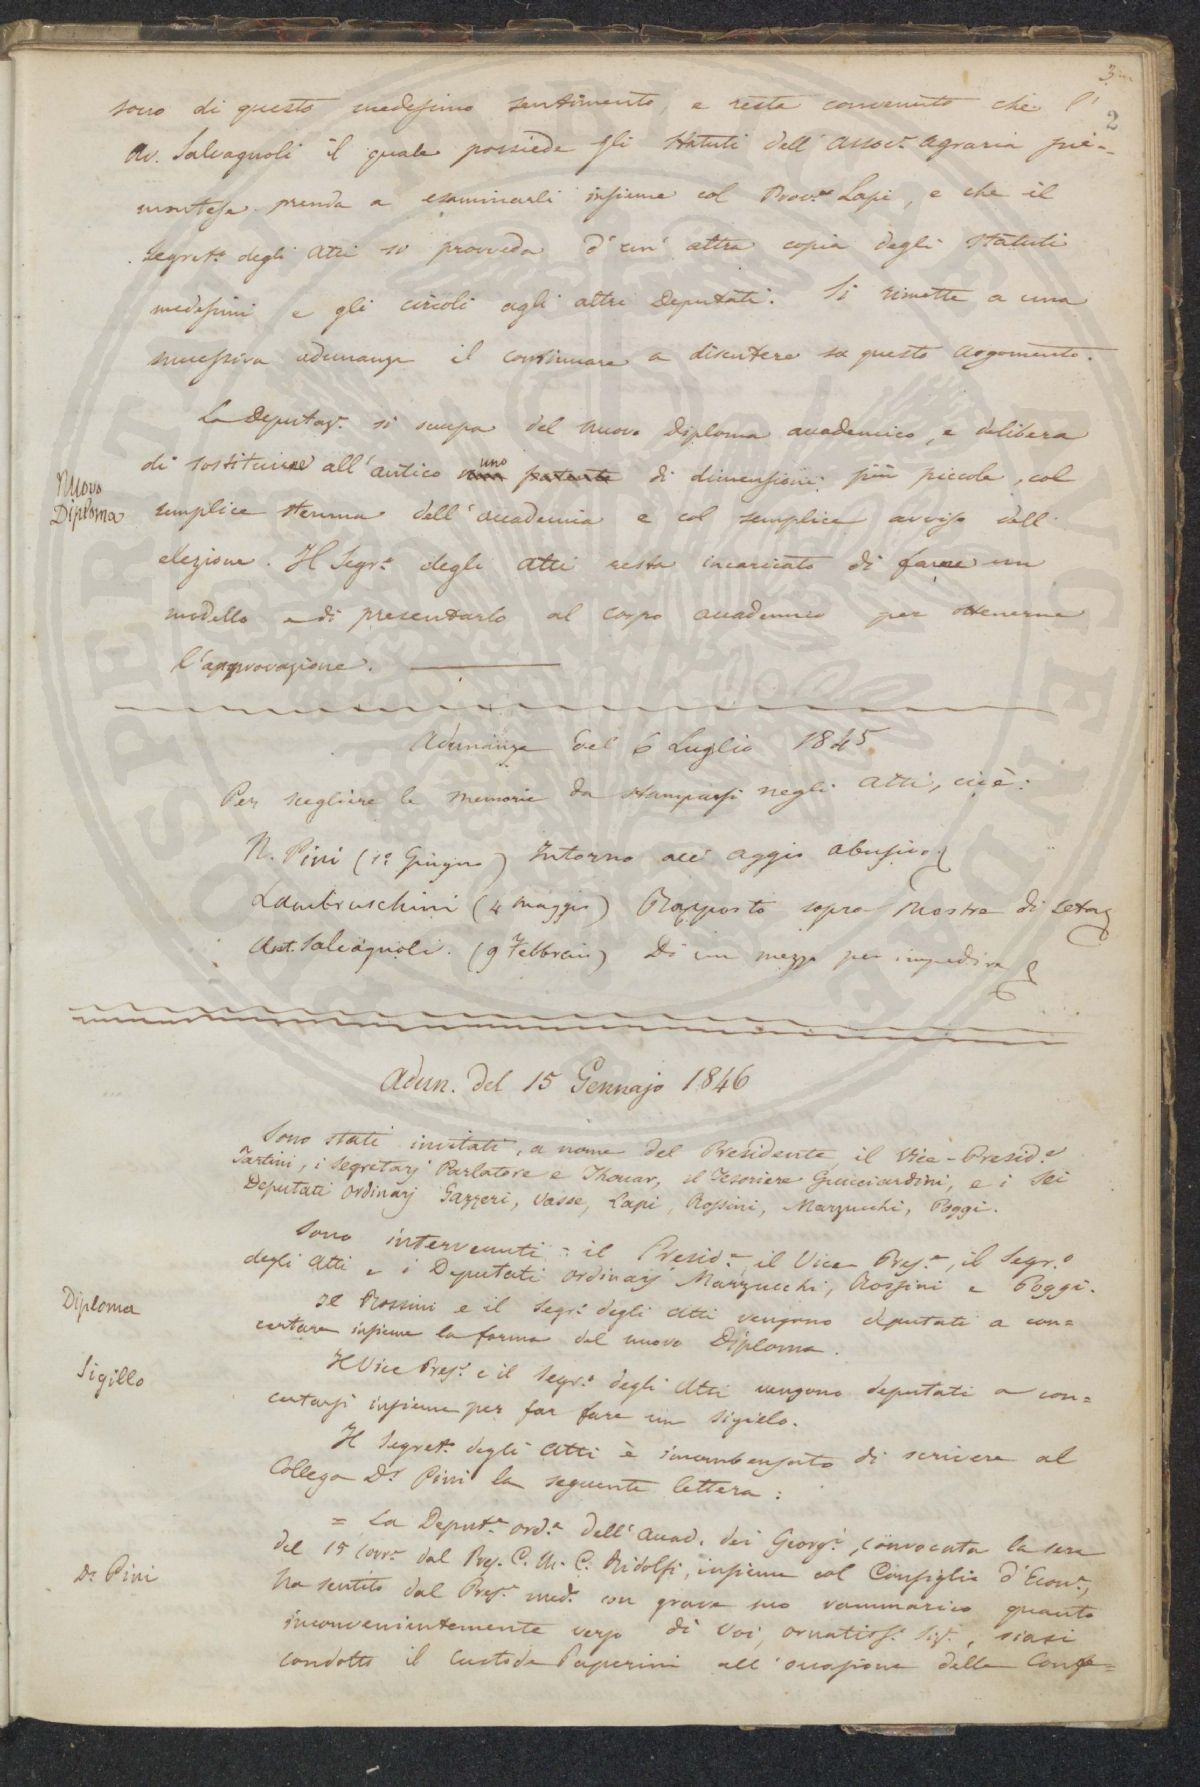 3
2
sono di questo medesimo sentimento, e resta convenuto che l'
Av. Salvagnoli il quale possiede gli Statuti dell'Assoc.e agraria pie-
montese prenda a esaminarli insieme col Prov.re Lapi, e che il
Segret.o degli Atti si provveda d'un'altra copia degli Statuti
medesimi e gli circoli agli altri Deputati. Si rimette a una
successiva adunanza il continuare a discutere su questo argomento.
La Deputaz.e si occupa del nuovo Diploma accademico, e delibera
di sostituirne all'antico uno patente di dimensioni più piccole, col
Nuovo
Diploma
semplice stemma dell'Accademia e col semplice avviso dell'
elezione. Il Segr.o degli Atti resta incaricato di farne un
modello e di presentarlo al corpo accademico per ottenerne
l'approvazione.
Adunanza del 6 Luglio 1845
Per scegliere le memorie da stamparsi negli Atti, cioè:
N. Pini (1° Giugno) Intorno all'aggio abusivo
Lambruschini (4 Maggio) Rapporto sopra Mostre di Seta
Ant. Salvagnoli. (9 Febbraio) Di un mezzo per impedire
Adun. del 15 Gennajo 1846
Sono stati invitati, a nome del Presidente, il Vice-Presid.e
Tartini, i Segretarj Parlatore e Thouar, il Tesoriere Guicciardini, e i Sei
Deputati ordinarj Gazzeri, Vasse, Lapi, Rossini, Marzucchi, Poggi.
Sono intervenuti: il Presid.e, il Vice Pres.e, il Segr.o
degli Atti e i Deputati ordinarj Marzucchi, Rossini e Poggi.
Diploma
Il Rossini e il Segr.o degli Atti vengono deputati a con=
certare insieme la forma del nuovo Diploma.
Sigillo
Il Vice Pres.e e il Segr.o degli Atti vengono deputati a con=
certarsi insieme per far fare un sigillo.
Il Segret.o degli Atti è incumbensato di scrivere al
Collega D.r Pini la seguente lettera:
= La Deput.e ord.a dell'Accad. dei Georg.i, convocata la sera
del 15 corr.e dal Pres. C. M. C. Ridolfi, insieme col Consiglio d'Econ.a,
D.r Pini
ha sentito dal Pres.e med.o con grave suo rammarico quanto
inconvenientemente verso di Voi, ornatiss.o Sig.r, siasi
condotto il Custode Paperini all'occasione della Confe=